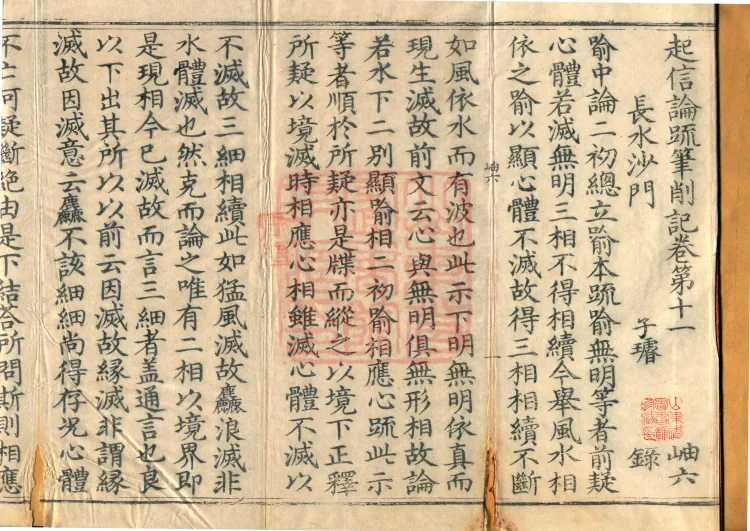 起信論疏筆削記卷第十一 岫六
長水沙門 子璿 錄
喻中論二初總立喻本疏喻無明等者前疑
心體若滅無明三相不得相續今舉風水相
依之喻以顯心體不滅故得三相相續不斷
岫六
如風依水而有波也此示下明無明依真而
現生滅故前文云心與無明俱無形相故論
若水下二別顯喻相二初喻相應心疏此示
等者順於所疑亦是牒而縱之以境下正釋
所疑以境滅時相應心相雖滅心體不滅以
不滅故三細相續此如猛風滅故麤浪滅非
水體滅也然克而論之唯有二相以境界即
是現相今已滅故而言三細者盖通言也良
以下出其所以以前云因滅故緣滅非謂緣
滅故因滅意云麤不該細細尚得存况心體
不亡何疑斷絕由是下結答所問斯則相應